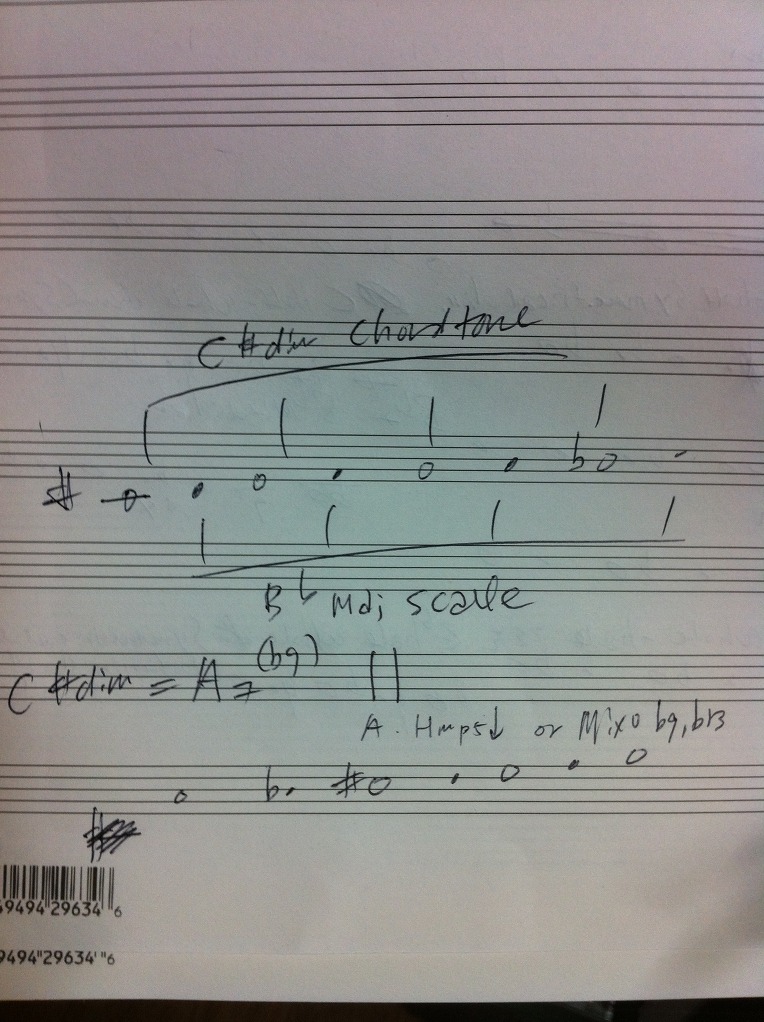 C#dim Chord tone
B♭ Maj scale
(b9)
C#dim = A7
A. Hmp5↓ or Mixo b9, b13
49494"29634 6
9494"29634'"6